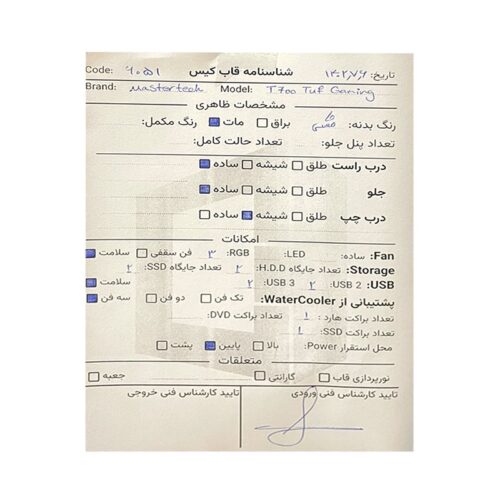 Code: 9051 شناسنامه قاب کیس تاریخ:
Brand: Mastertech Model: T700 Tuf Gaming
مشخصات ظاهری
رنگ بدنه: براق مات رنگ مکمل:
تعداد پنل جلو: تعداد حالت کامل:
درب راست طلق شیشه ساده
جلو طلق شیشه ساده
درب چپ طلق شیشه ساده
امکانات
Fan: ساده: LED: RGB: ۳ فن سقفی سلامت
Storage: تعداد جایگاه H.D.D: ۲ تعداد جایگاه SSD: ۲
USB: USB 2: ۲ USB 3: ۲ سلامت
پشتیبانی از WaterCooler تک فن دو فن سه فن
تعداد براکت هارد: ۱ تعداد براکت DVD:
تعداد براکت SSD: ۱
محل استقرار Power: بالا پایین پشت
متعلقات
نورپردازی قاب گارانتی جعبه
تایید کارشناس فنی ورودی تایید کارشناس فنی خروجی